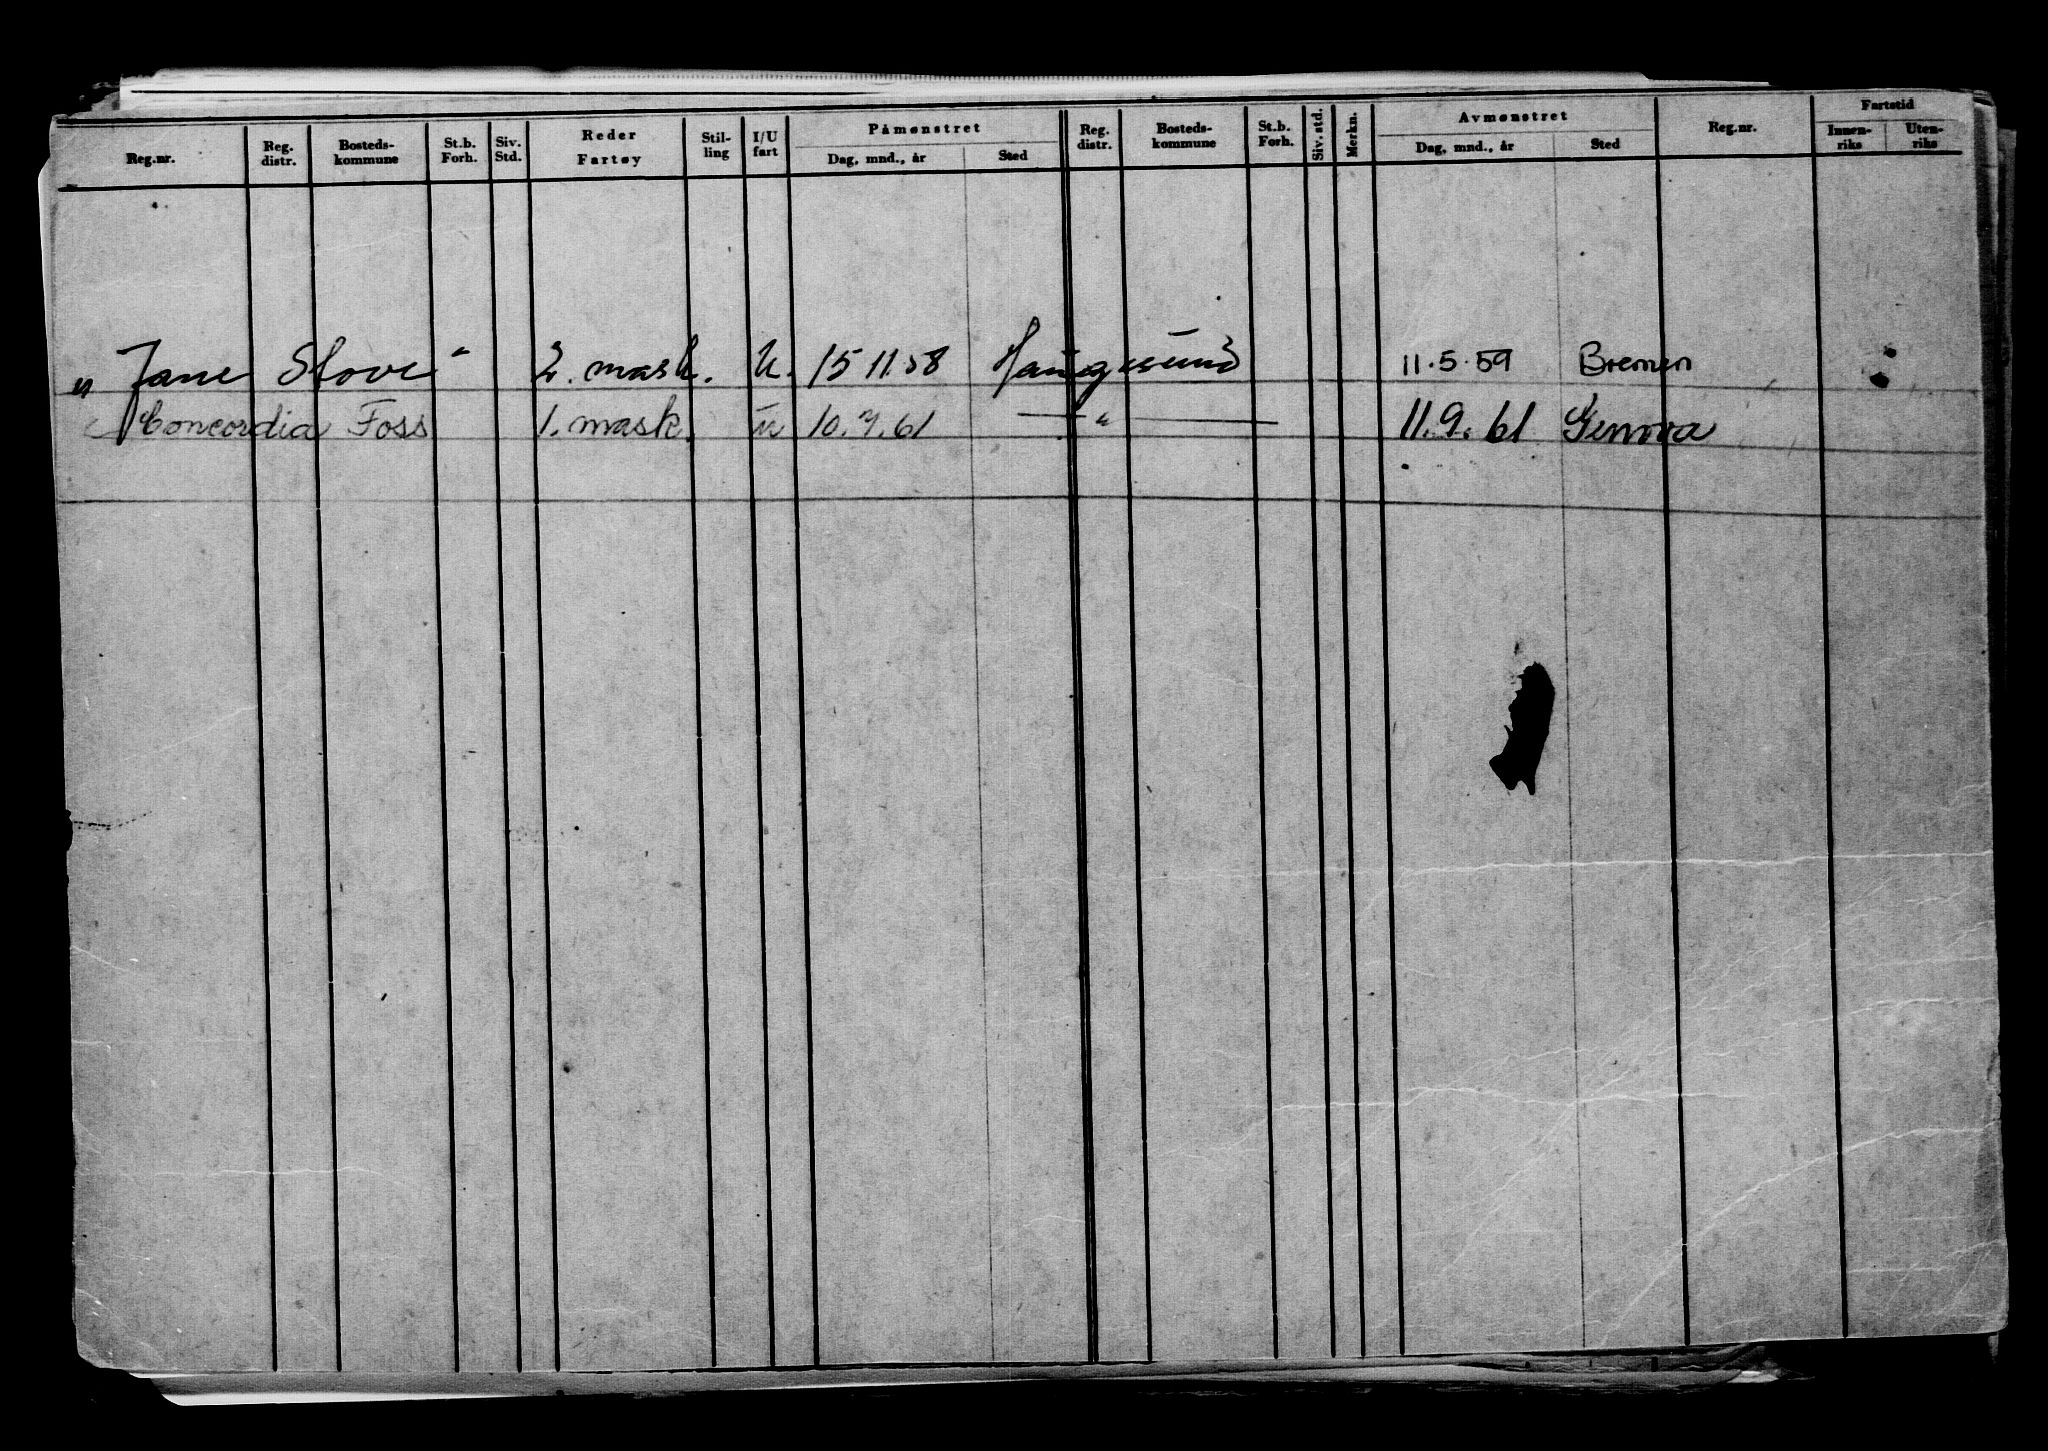 Reg.nr. Reg. distr. Bosteds-kommune St.b. Forh. Siv. Std. Reder Fartøy Stil-ling I/U fart Påmønstret Dag, mnd., år Sted Reg. distr. Bosteds-kommune St.b. Forh. Siv. std. Merkn. Avmønstret Dag, mnd., år Sted Reg.nr. Fartstid Innen-riks Uten-riks
„Jane Stove“ 2. mask. U. 15 11.58 Haugesund 11.5.59 Bremen
Concordia Foss 1. mask. U 10.7.61 — " — 11.9.61 Genova